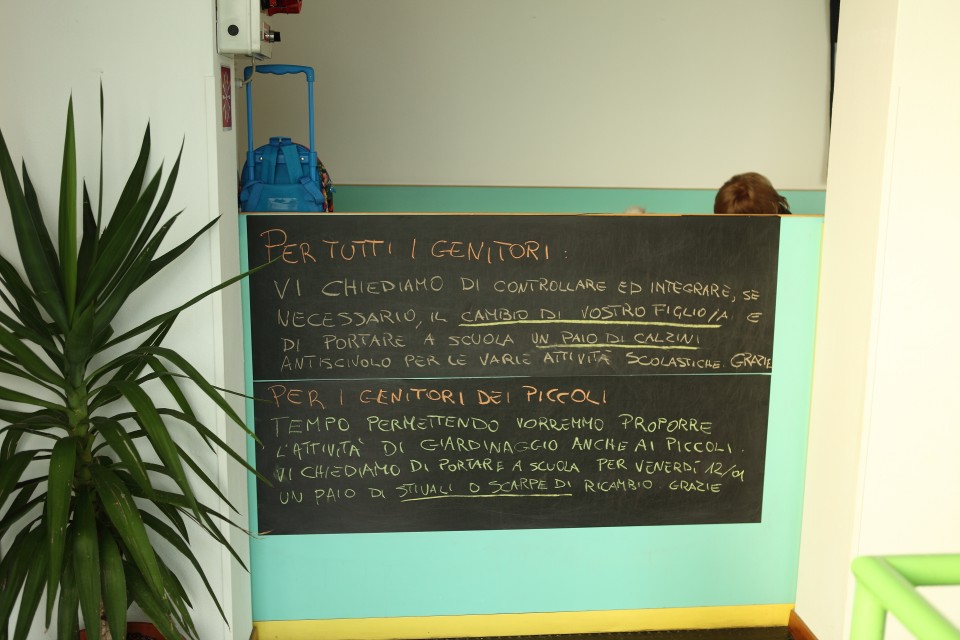 PER TUTTI I GENITORI :
VI CHIEDIAMO DI CONTROLLARE ED INTEGRARE, SE
NECESSARIO, IL CAMBIO DI VOSTRO FIGLIO/A E
DI PORTARE A SCUOLA UN PAIO DI CALZINI
ANTISCIVOLO PER LE VARIE ATTIVITÀ SCOLASTICHE. GRAZIE
PER I GENITORI DEI PICCOLI
TEMPO PERMETTENDO VORREMMO PROPORRE
L'ATTIVITÀ DI GIARDINAGGIO ANCHE AI PICCOLI.
VI CHIEDIAMO DI PORTARE A SCUOLA PER VENERDÌ 12/01
UN PAIO DI STIVALI O SCARPE DI RICAMBIO GRAZIE